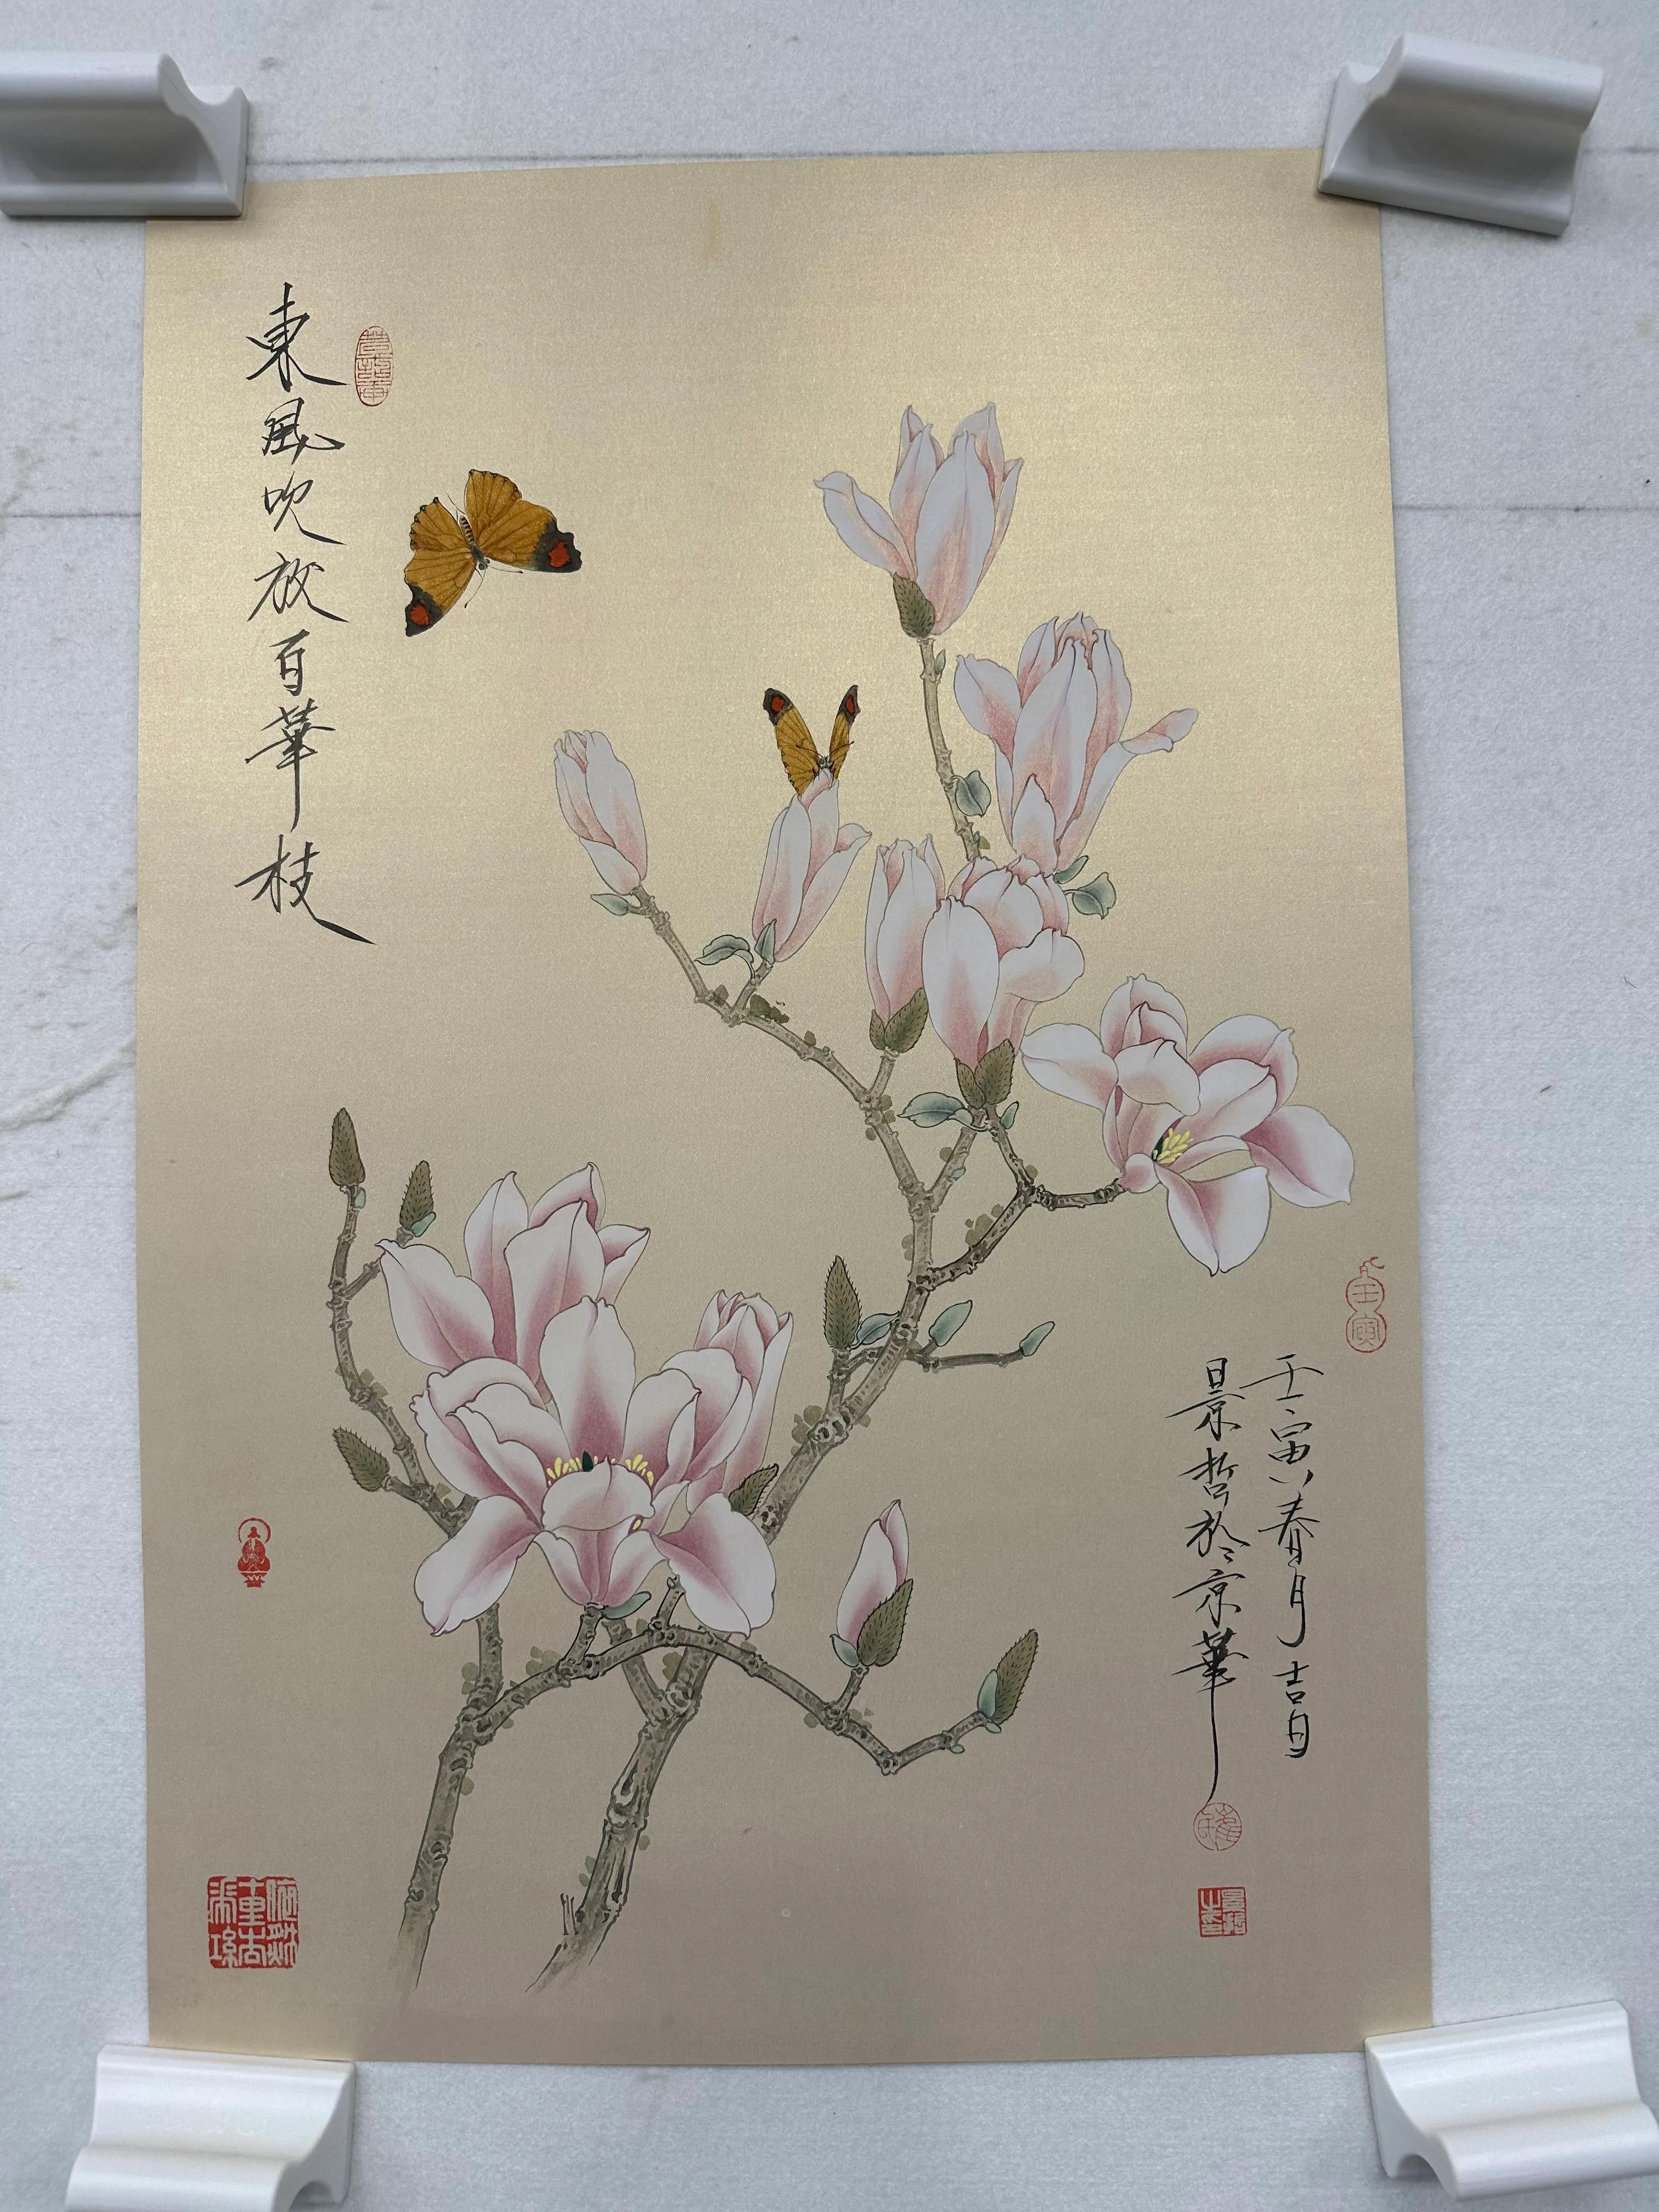 壬寅春月吉日
景哲於京華
東風吹放百華枝
壬寅